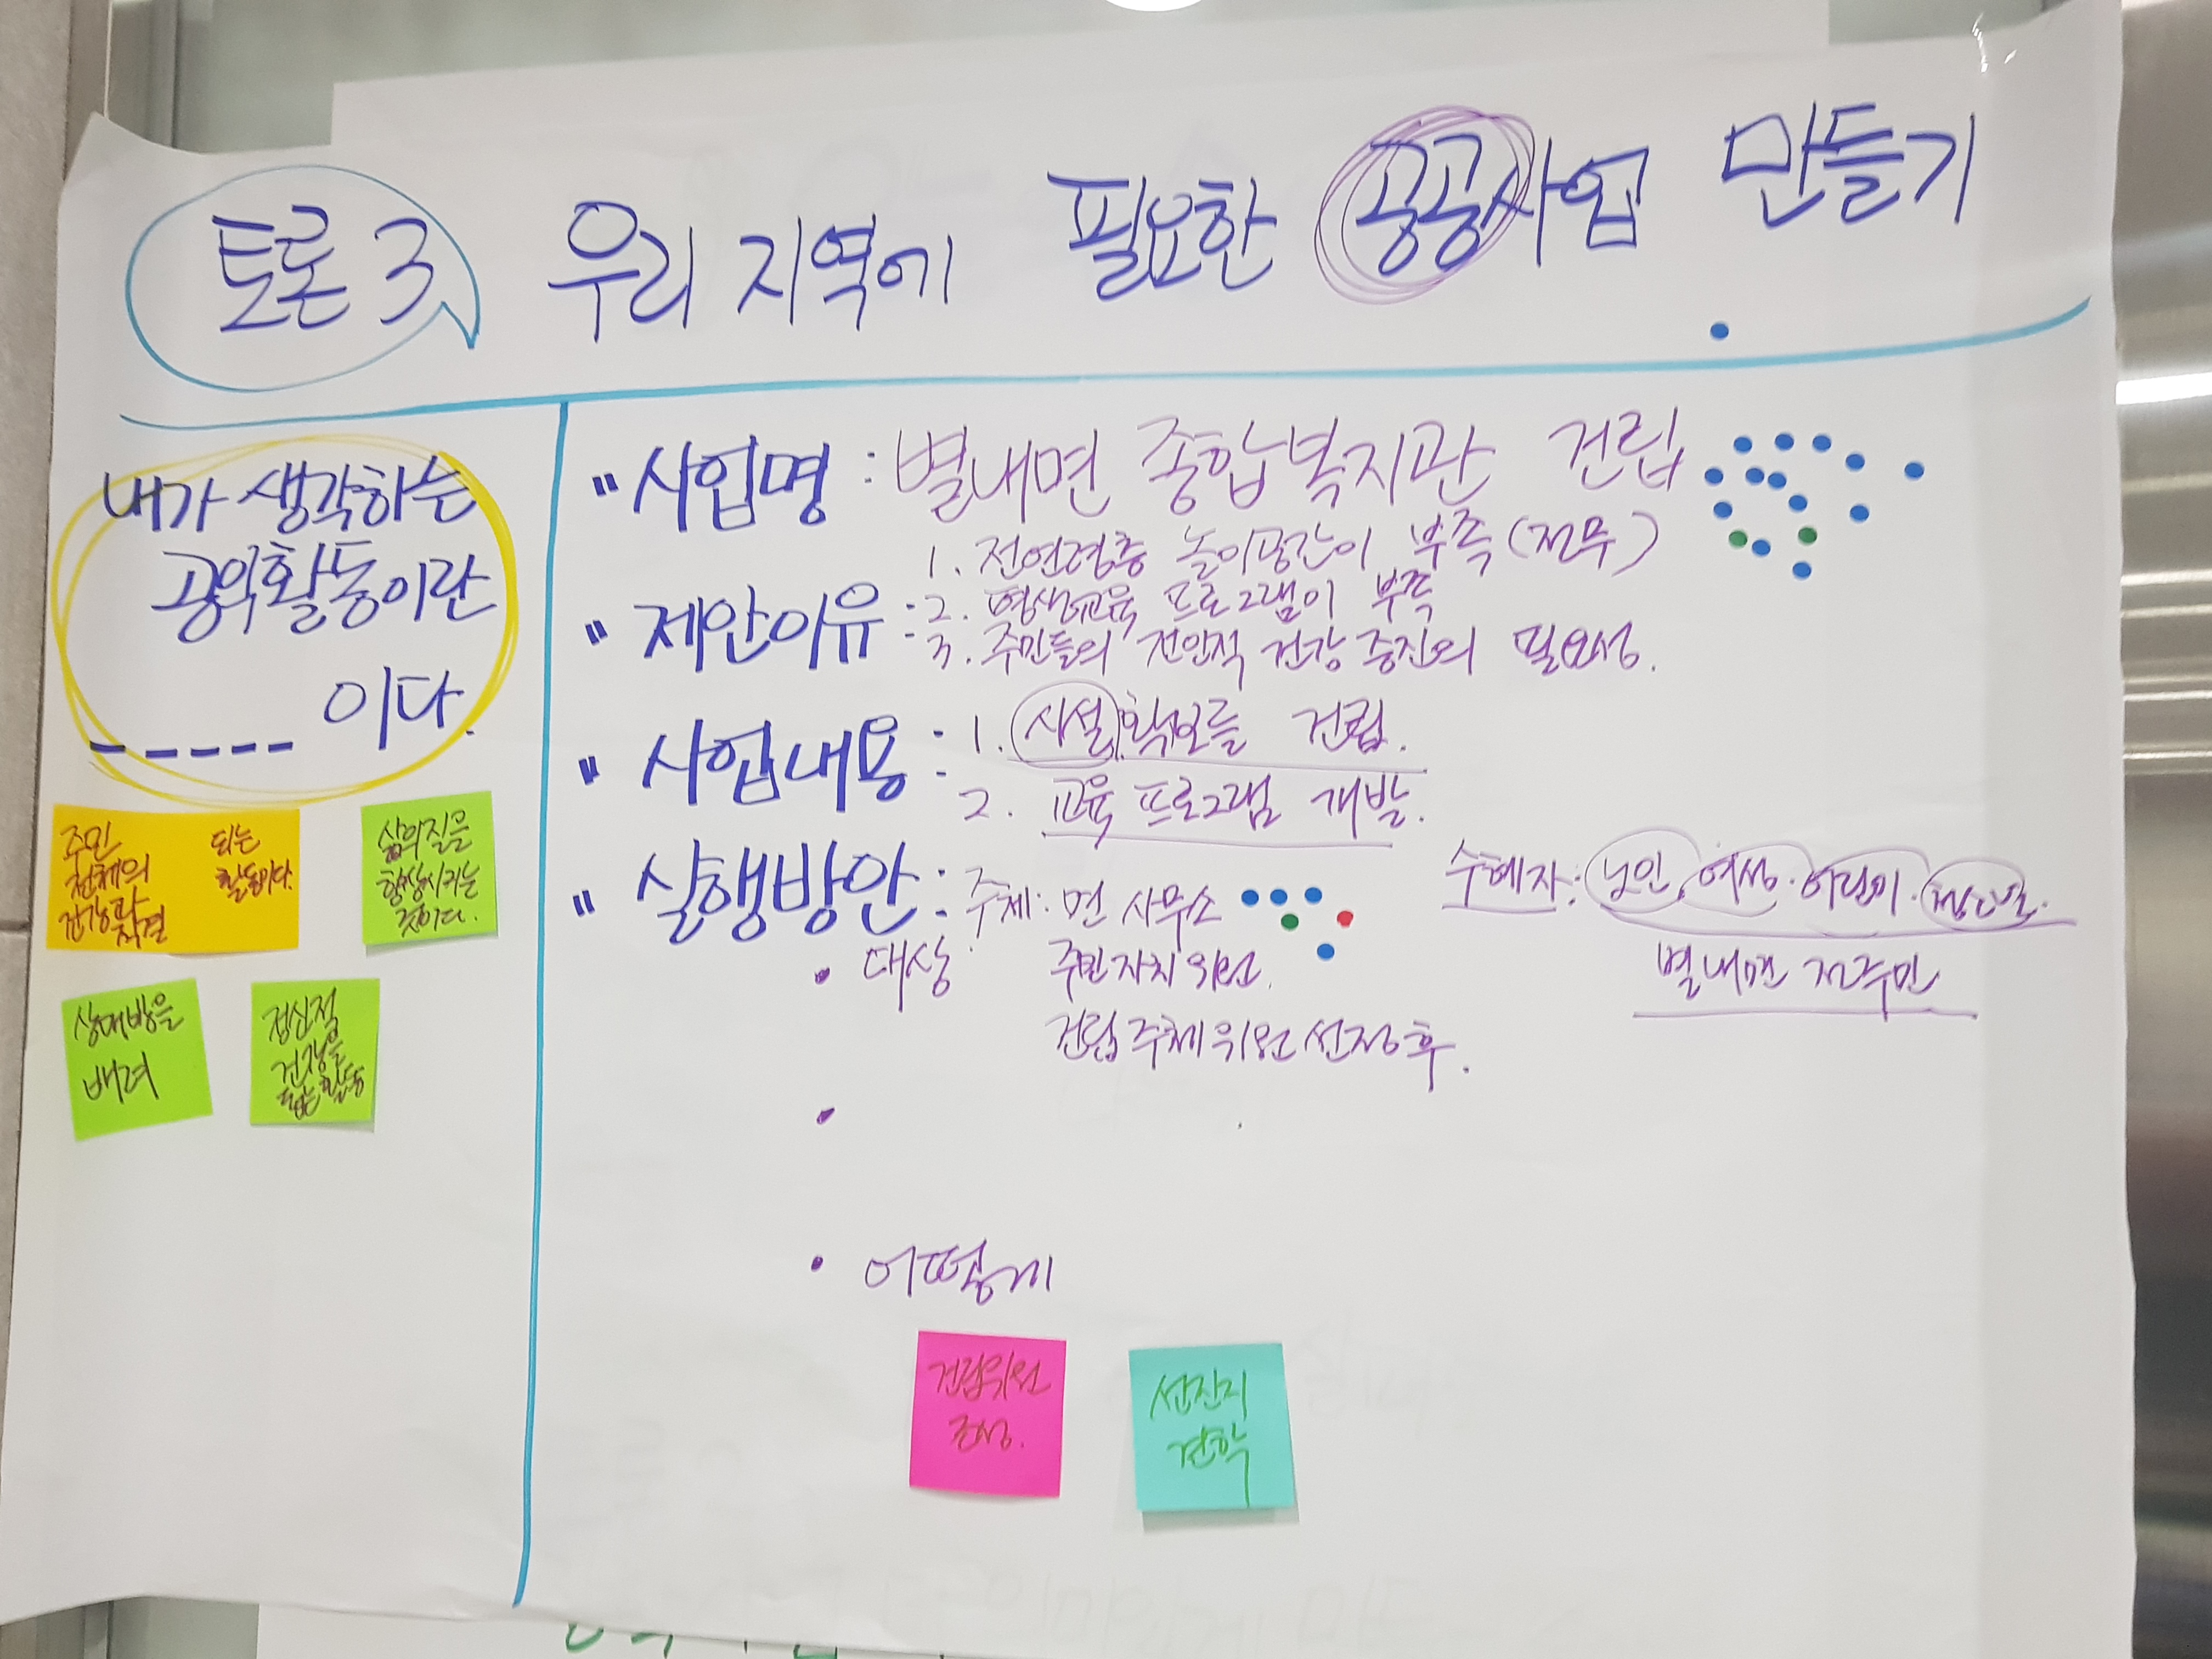 토론 3 우리 지역에 필요한 공공사업 만들기
내가 생각하는
공익활동이란
----- 이다.
주민 되는
전체의 활동이다.
건강과
직결
삶의질을
향상시키는
것이다.
상대방을
배려
정신적
건강을
돕는 활동
" 사업명 : 별내면 종합복지관 건립
" 제안이유 : 1. 전연령층 놀이공간이 부족 (전무)
2. 평생교육 프로그램이 부족
3. 주민들의 전인적 건강 증진의 필요성.
" 사업내용 : 1. 시설확보를 건립.
2. 교육 프로그램 개발.
" 실행방안 : 주체: 면 사무소
• 대상 주민자치위원.
건립주체위원선정후.
수혜자: 노인, 여성. 어린이. 청소년.
별내면 전주민
• 어떻게
건립위원
조성.
선진지
견학